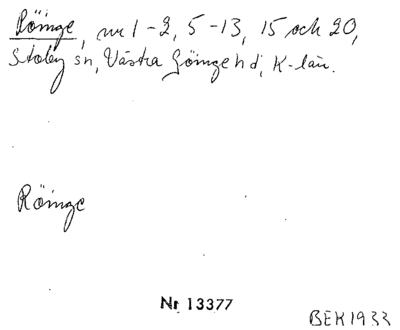 Röinge, nr 1-2, 5-13, 15 och 20,
Stoby sn, Västra Göinge hd, K-län.
Röinge
Nr 13377
BEH 1933